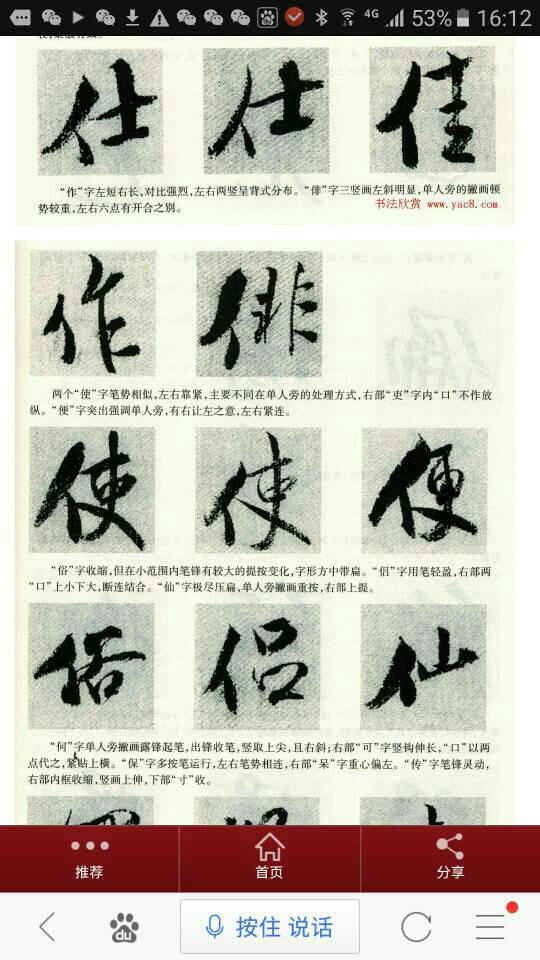 4G 53% 16:12
仕 仕 佳
“作”字左短右长，对比强烈，左右两竖呈背式分布。“俳”字三竖画左斜明显，单人旁的撇画顿
势较重，左右六点有开合之别。
书法欣赏 www.yac8.com
作 俳
两个“使”字笔势相似，左右靠紧，主要不同在单人旁的处理方式，右部“吏”字内“口”不作放
纵。“便”字突出强调单人旁，有右让左之意，左右紧连。
使 使 便
“俗”字收缩，但在小范围内笔锋有较大的提按变化，字形方中带扁。“侣”字用笔轻盈，右部两
“口”上小下大，断连结合。“仙”字极尽压扁，单人旁撇画重按，右部上提。
俗 侣 仙
“何”字单人旁撇画露锋起笔，出锋收笔，竖取上尖，且右斜；右部“可”字竖钩伸长，“口”以两
点代之，紧贴上横。“保”字多按笔运行，左右笔势相连，右部“呆”字重心偏左。“传”字笔锋灵动，
右部内框收缩，竖画上伸，下部“寸”收。
推荐 首页 分享
du 按住 说话